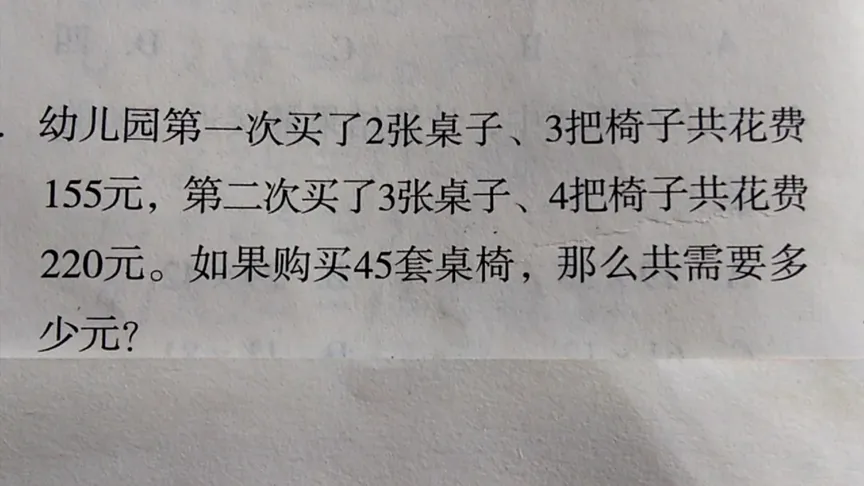 幼儿园第一次买了2张桌子、3把椅子共花费
155元，第二次买了3张桌子、4把椅子共花费
220元。如果购买45套桌椅，那么共需要多
少元?